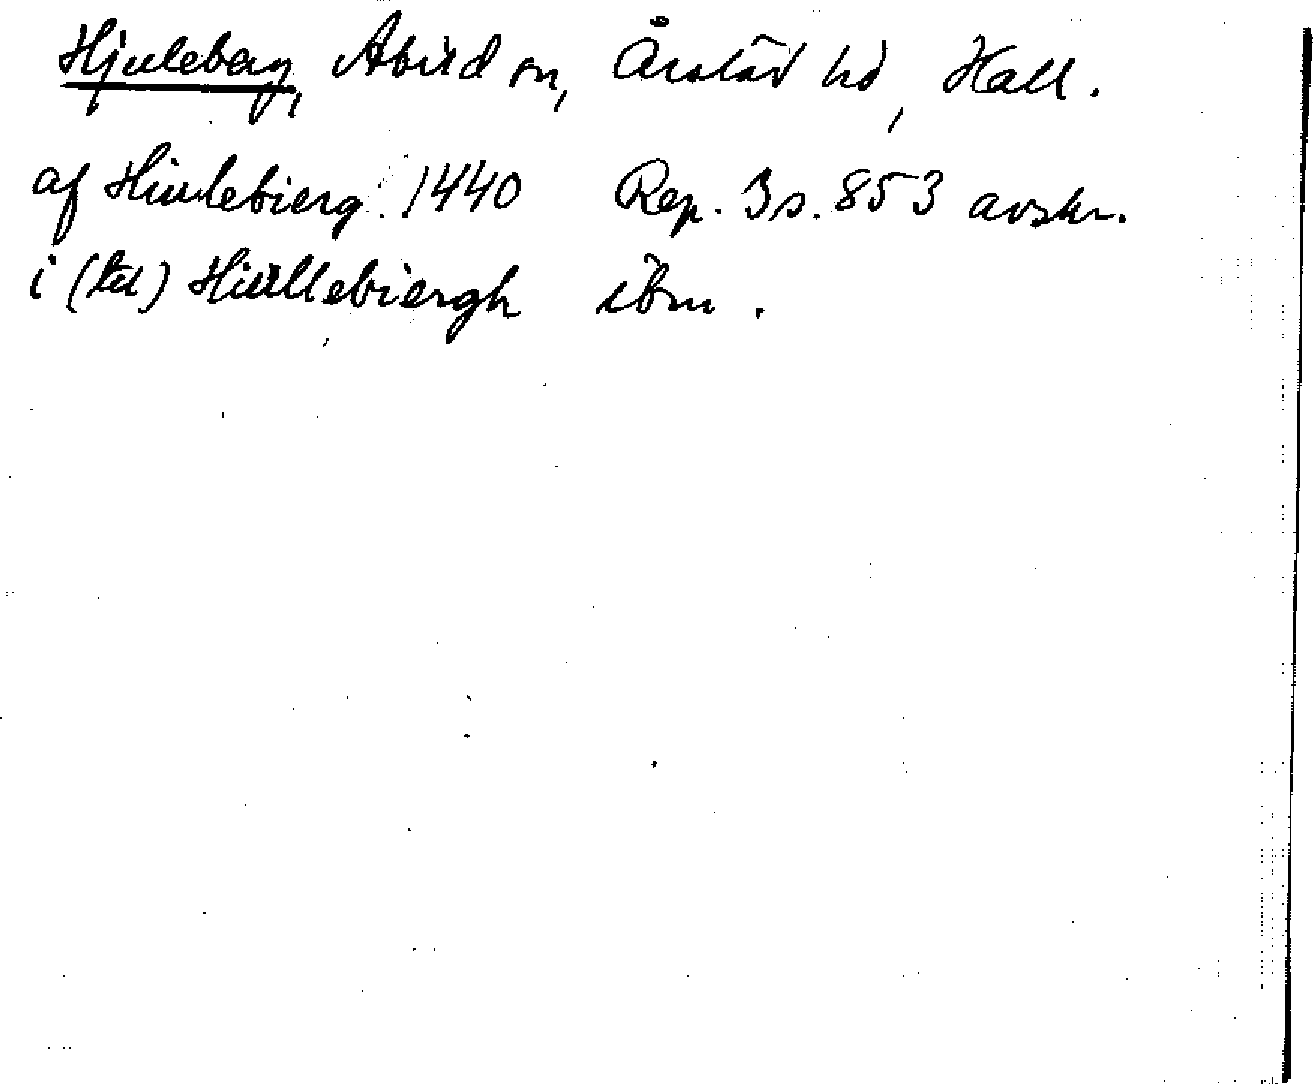 Hjuleberg, Abild sn, Årstad hd, Hall.
af Hiulebierg 1440 Rep. 3 s. 853 avskr.
i (till) Hiullebiergh ibm.